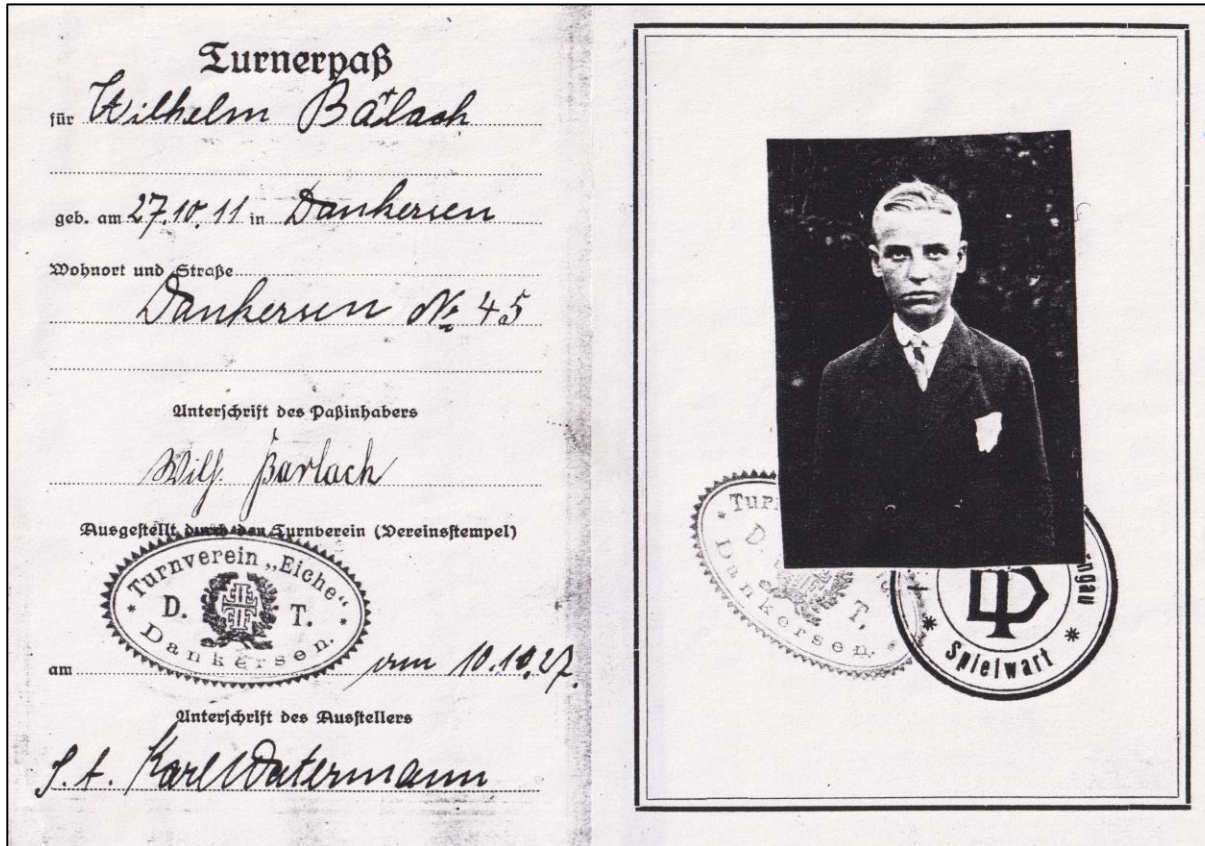 Turnerpaß
für Wilhelm Barlach
geb. am 27.10.11 in Dankersen
Wohnort und Straße
Dankersen No 45
Unterschrift des Paßinhabers
Wilh. Barlach
Ausgestellt durch den Turnverein (Vereinsstempel)
* Turnverein „Eiche“ *
D. T.
Dankersen.
am am 10.10.27.
Unterschrift des Ausstellers
Karl Watermann
Tur
D. T.
Dankersen. *
ngau
* Spielwart *